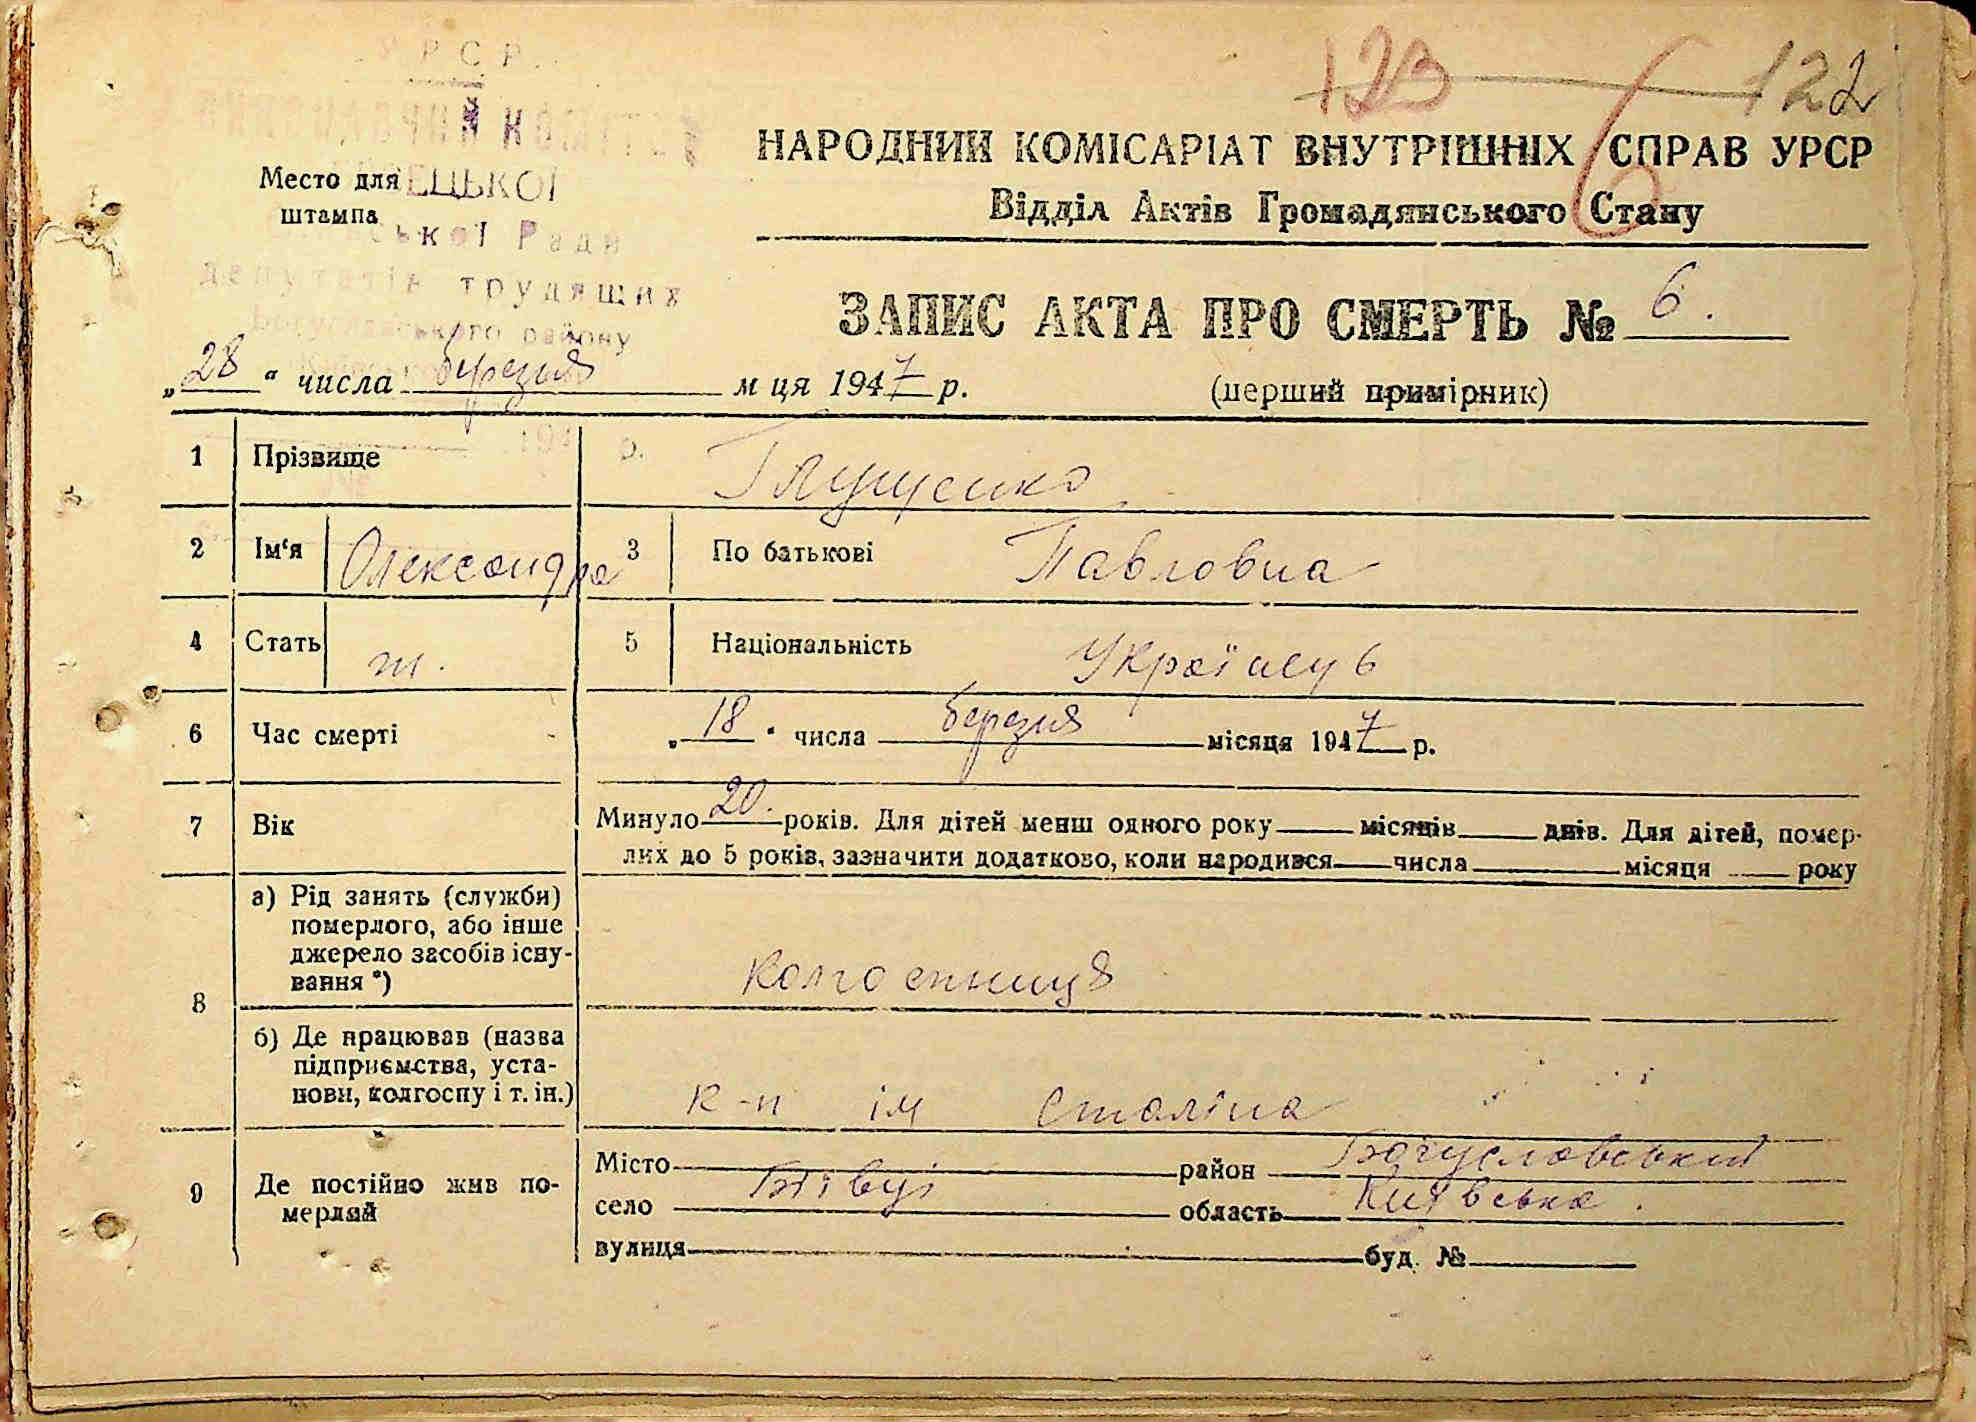 УРСР
123 122
НАРОДНИЙ КОМІСАРІАТ ВНУТРІШНІХ СПРАВ УРСР
6
Место для
штампа
ЕЦЬКОЇ
ської Ради
Відділ Актів Громадянського Стану
депутатів трудящих
Богуславського району
ЗАПИС АКТА ПРО СМЕРТЬ № 6.
„28“ числа березня м ця 1947 р.
(перший примірник)
194 р.
1 Прізвище Глущенко
2 Ім‘я Олександра 3 По батькові Павловна
4 Стать ж. 5 Національність
6 Час смерті „18“ числа березня місяця 1947 р.
7 Вік Минуло 20. років. Для дітей менш одного року місяців днів. Для дітей, помер-
лих до 5 років, зазначити додатково, коли народився числа місяця року
8 а) Рід занять (служби)
померлого, або інше
джерело засобів існу-
вання *)
колгоспниця
б) Де працював (назва
підприємства, уста-
нови, колгоспу і т. ін.)
к-п ім Сталіна
9 Де постійно жив по-
мерлий
Місто район Богуславський
село Бі івці область Київська.
вулиця буд. №